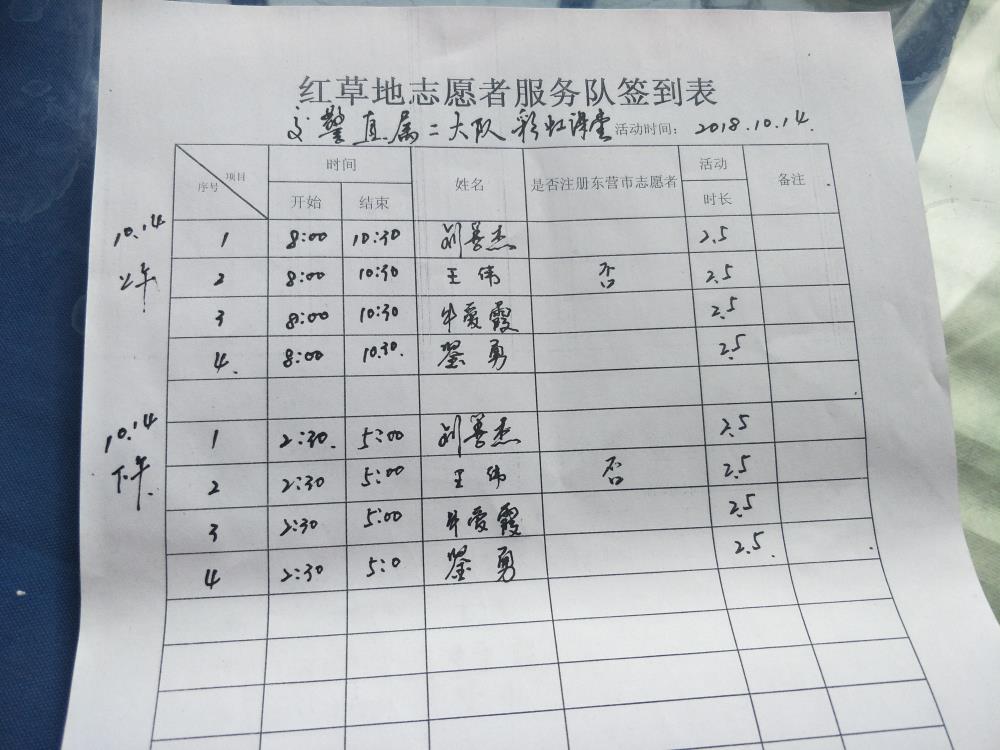 红草地志愿者服务队签到表
交警直属二大队 彩虹课堂 活动时间: 2018.10.14.
序号 项目 时间 姓名 是否注册东营市志愿者 活动 备注
开始 结束 时长
10.14 上午
1 8:00 10:30 刘善杰 2.5
2 8:00 10:30 王伟 否 2.5
3 8:00 10:30 牛爱霞 2.5
4. 8:00 10.30. 勇 2.5
10.14 下午.
1 2:30. 5:00 刘善杰 2.5
2 2:30 5:00 王伟 否 2.5
3 2:30 5:00 牛爱霞 2.5
4 2:30 5:0 勇 2.5.